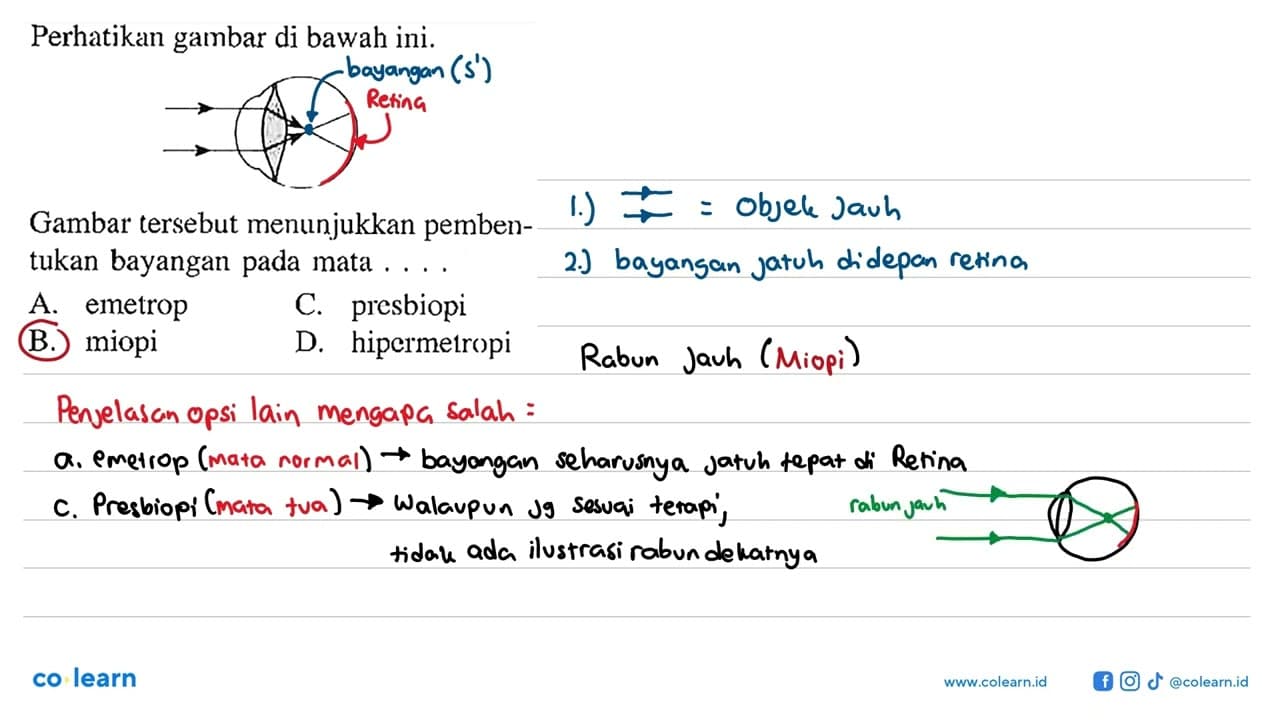 Perhatikan gambar di bawah ini.
bayangan (s')
Retina
Gambar tersebut menunjukkan pemben-
tukan bayangan pada mata . . . .
A. emetrop C. presbiopi
B. miopi D. hipermetropi
1.) = Objek Jauh
2.) bayangan jatuh didepan retina
Rabun Jauh (Miopi)
Penjelasan opsi lain mengapa salah :
a. emetrop (mata normal) → bayangan seharusnya jatuh tepat di Retina
c. Presbiopi (mata tua) → Walaupun jg sesuai tetapi,
tidak ada ilustrasi rabun dekatnya
rabun jauh
co learn
www.colearn.id
@colearn.id